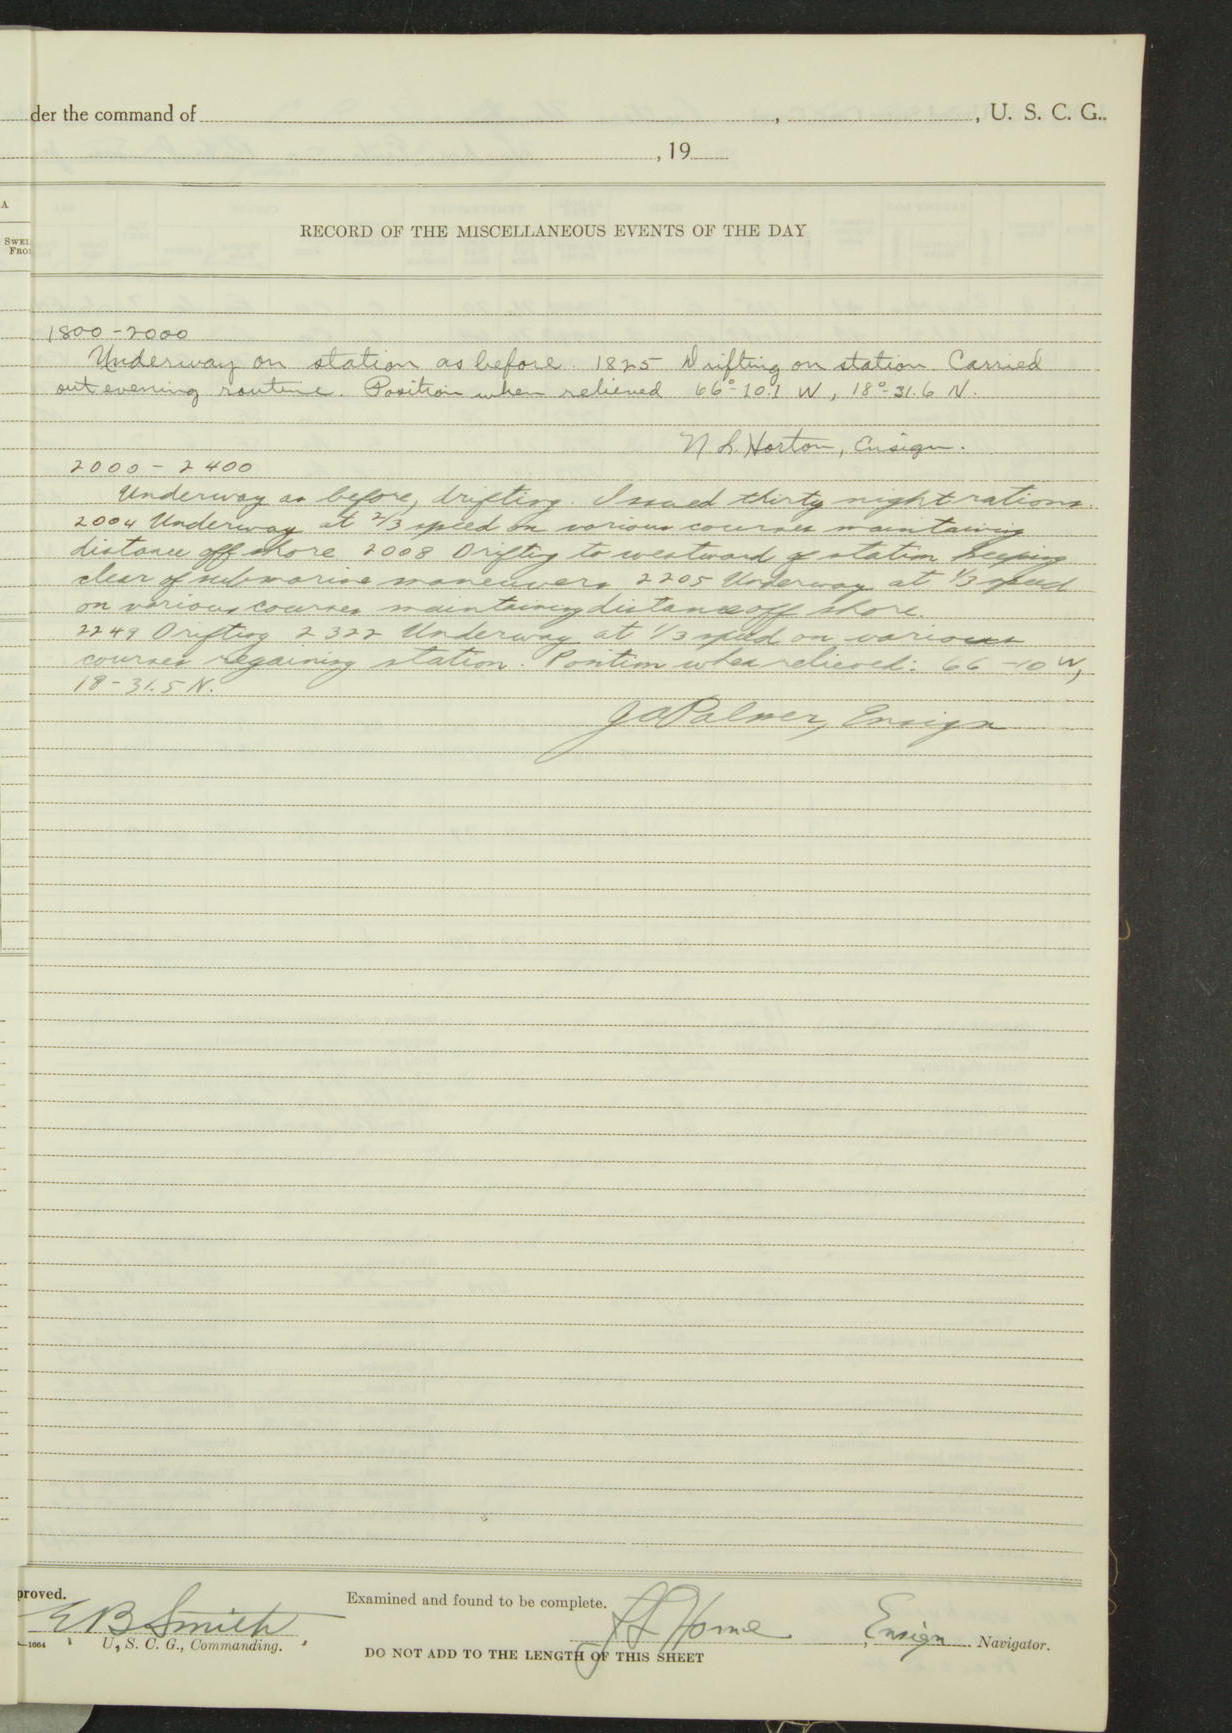 der the command of , , U. S. C. G..
, 19
A
SWEL
FRO
RECORD OF THE MISCELLANEOUS EVENTS OF THE DAY
1800-2000
Underway on station as before. 1825 Drifting on station. Carried
out evening routine. Position when relieved 66°-10.1 W, 18°-31.6 N.
N L. Horton, Ensign.
2000 - 2400
Underway as before, drifting. Issued thirty night rations.
2004 Underway at 2/3 speed on various courses maintaining
distance off shore 2008 Drifting to westward of station keeping
clear of submarine maneuvers 2205 Underway at 1/3 speed
on various courses maintaining distance off shore.
2249 Drifting 2322 Underway at 1/3 speed on various
courses regaining station. Position when relieved: 66-10 W,
18-31.5 N.
J A Palmer, Ensign
proved.
Examined and found to be complete.
E B Smith
Horne , Ensign Navigator.
—1664 U, S. C. G., Commanding.
DO NOT ADD TO THE LENGTH OF THIS SHEET